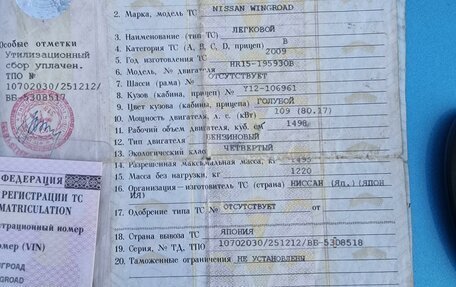 Особые отметки
Утилизационный
сбор уплачен.
ТПО №
10702030/251212/
ВВ-5308517
ФЕДЕРАЦИЯ
РЕГИСТРАЦИИ ТС
MATRICULATION
страционный номер
номер (VIN)
2. Марка, модель ТС NISSAN WINGROAD
3. Наименование (тип ТС) ЛЕГКОВОЙ
4. Категория ТС (А, В, С, D, прицеп) B
5. Год изготовления ТС 2009
6. Модель, № двигателя HR15-195930B
7. Шасси (рама) № ОТСУТСТВУЕТ
8. Кузов (кабина, прицеп) № Y12-106961
9. Цвет кузова (кабины, прицепа) ГОЛУБОЙ
10. Мощность двигателя, л. с. (кВт) 109 (80.17)
11. Рабочий объем двигателя, куб. см 1498
12. Тип двигателя БЕНЗИНОВЫЙ
13. Экологический класс ЧЕТВЕРТЫЙ
14. Разрешенная максимальная масса, кг 1495
15. Масса без нагрузки, кг 1220
16. Организация—изготовитель ТС (страна) НИССАН (Яп.) (ЯПОН
ИЯ)
17. Одобрение типа ТС № ОТСУТСТВУЕТ от
18. Страна вывоза ТС ЯПОНИЯ
19. Серия, № ТД, ТПО 10702030/251212/ВВ-5308518
20. Таможенные ограничения НЕ УСТАНОВЛЕНЫ